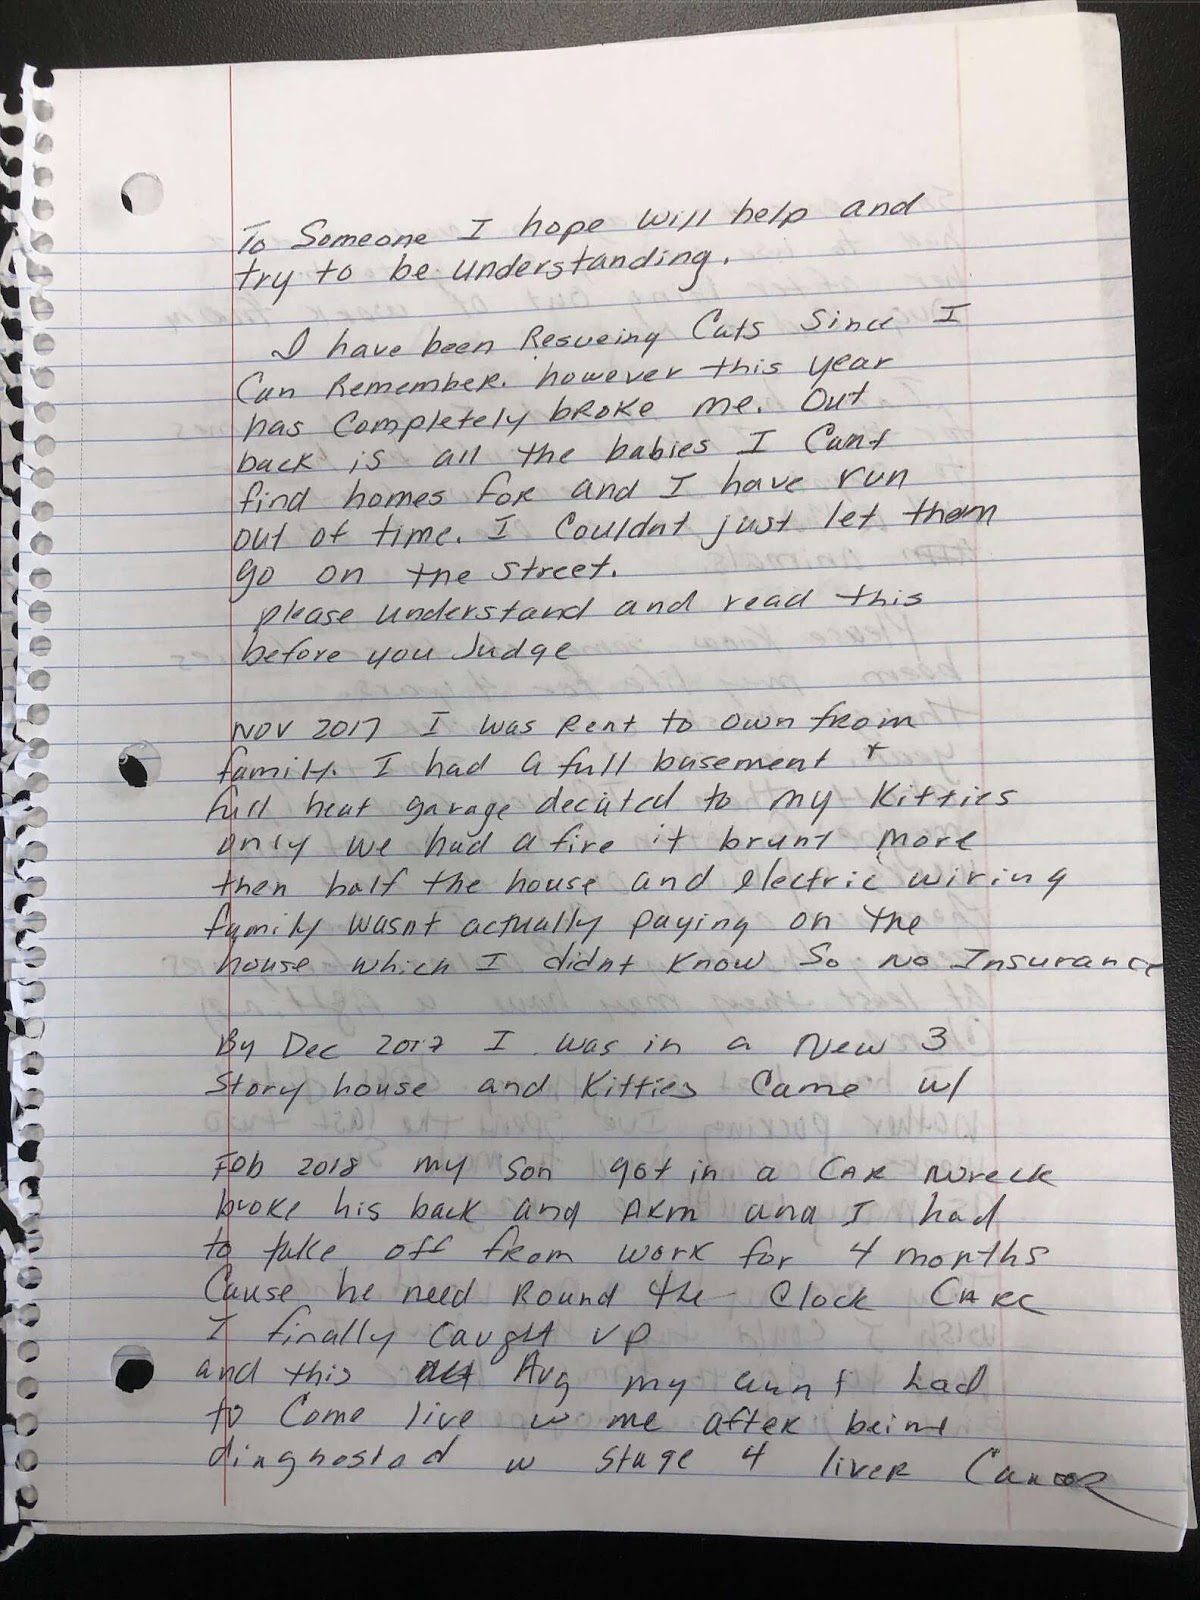 To Someone I hope will help and
try to be understanding.
I have been Resueing Cats Since I
Can Remember. however this year
has Completely broke me. Out
back is all the babies I Cant
find homes for and I have run
out of time. I Couldnt just let them
go on the street.
please understand and read this
before you Judge
Nov 2017 I was Rent to own from
family. I had a full basement +
full heat garage decated to my Kitties
only we had a fire it brunt more
then half the house and electric wiring
family wasnt actually paying on the
house which I didnt know So no Insurance
By Dec 2017 I was in a New 3
Story house and Kitties Came w/
Feb 2018 my son got in a CAR wreck
broke his back and ARm and I had
to take off from work for 4 months
Cause he need Round the Clock CARE
I finally Caught up
and this Aug my aunt had
to Come live w me after being
diagnosted w stage 4 liver Cancer